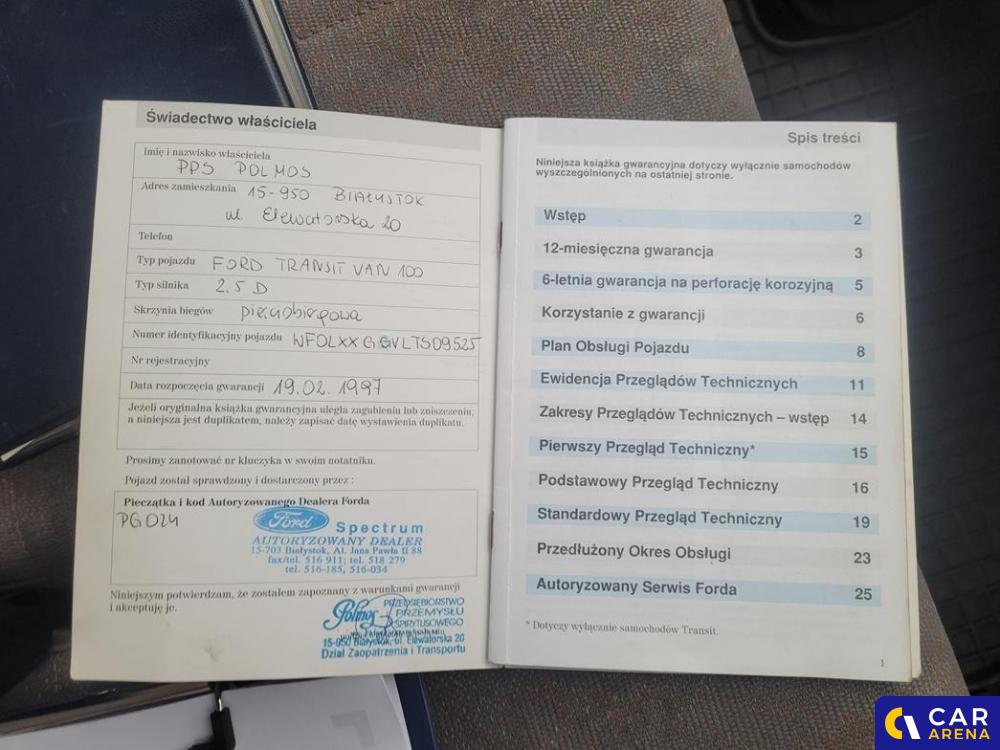 Świadectwo właściciela
Imię i nazwisko właściciela
PPS POLMOS
Adres zamieszkania 15-950 BIAŁYSTOK
ul. Elewatorska 20
Telefon
Typ pojazdu FORD TRANSIT VAN 100
Typ silnika 2.5 D
Skrzynia biegów pięciobiegowa
Numer identyfikacyjny pojazdu WFOLXXGGVLTS09525
Nr rejestracyjny
Data rozpoczęcia gwarancji 19.02.1997
Jeżeli oryginalna książka gwarancyjna uległa zagubieniu lub zniszczeniu,
a niniejsza jest duplikatem, należy zapisać datę wystawienia duplikatu.
Prosimy zanotować nr kluczyka w swoim notatniku.
Pojazd został sprawdzony i dostarczony przez :
Pieczątka i kod Autoryzowanego Dealera Forda
PG024
Ford Spectrum
AUTORYZOWANY DEALER
15-703 Białystok, Al. Jana Pawła II 88
fax/tel. 516 911; tel. 518 279
tel. 516-185, 516-034
Niniejszym potwierdzam, że zostałem zapoznany z warunkami gwarancji
i akceptuję je.
Polmos PRZEDSIĘBIORSTWO
PRZEMYSŁU
SPIRYTUSOWEGO
15-950 Białystok, ul. Elewatorska 20
Dział Zaopatrzenia i Transportu
Spis treści
Niniejsza książka gwarancyjna dotyczy wyłącznie samochodów
wyszczególnionych na ostatniej stronie.
Wstęp 2
12-miesięczna gwarancja 3
6-letnia gwarancja na perforację korozyjną 5
Korzystanie z gwarancji 6
Plan Obsługi Pojazdu 8
Ewidencja Przeglądów Technicznych 11
Zakresy Przeglądów Technicznych – wstęp 14
Pierwszy Przegląd Techniczny* 15
Podstawowy Przegląd Techniczny 16
Standardowy Przegląd Techniczny 19
Przedłużony Okres Obsługi 23
Autoryzowany Serwis Forda 25
* Dotyczy wyłącznie samochodów Transit.
1
CAR
ARENA